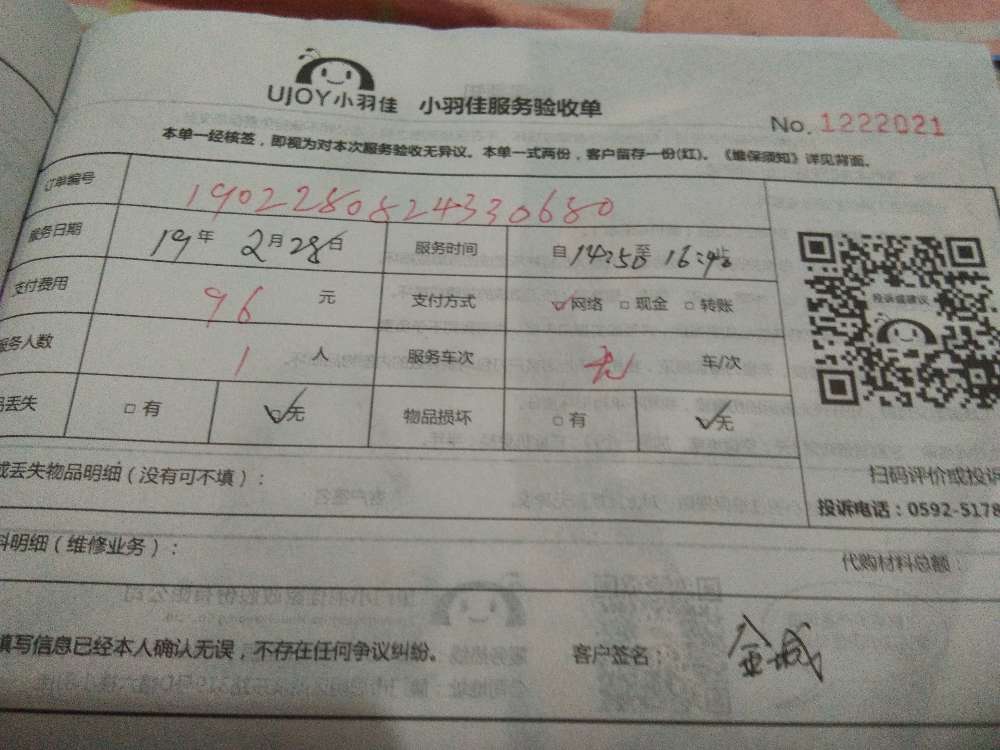 UJOY小羽佳 小羽佳服务验收单
No. 1222021
本单一经核签，即视为对本次服务验收无异议。本单一式两份，客户留存一份(红)。《维保须知》详见背面。
订单编号 1902280824330680
服务日期 19年 2月28日 服务时间 自14:50至16:40止
支付费用 96 元 支付方式 网络 现金 转账
投诉或建议
服务人数 1 人 服务车次 无 车/次
丢失 有 无 物品损坏 有 无
丢失物品明细（没有可不填）：
扫码评价或投诉
投诉电话：0592-5178
料明细（维修业务）：
代购材料总额：
填写信息已经本人确认无误，不存在任何争议纠纷。 客户签名：